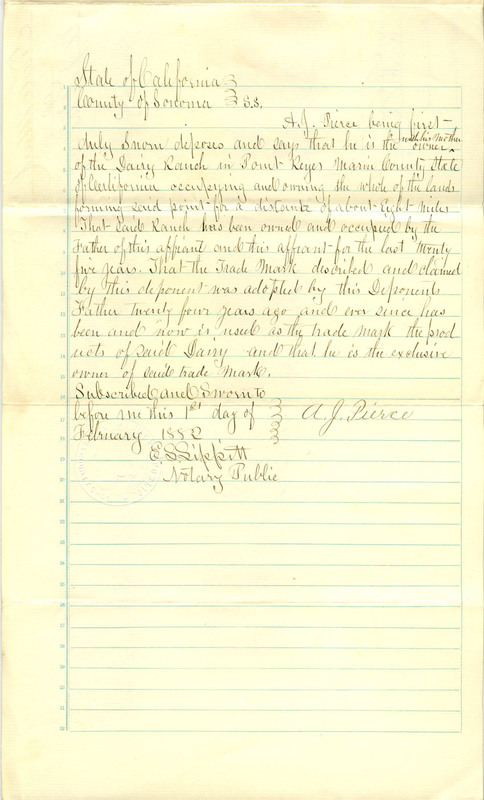 State of California }
County of Sonoma } S.S.
A. J. Pierce being first
duly Sworn deposes and says that he is the with his Mother owner
of the Dairy Ranch in Point Reyes Marin County State
of California occupying and owning the whole of the lands
forming said point for a distance of about Eight Miles
That said Ranch has been owned and occupied by the
Father of this affiant and this affiant for the last twenty
five years. That the Trade Mark described and claimed
by this deponent was adopted by this Deponents
Father twenty four years ago and ever since has
been and now is used as the trade mark the prod
ucts of said Dairy and that he is the exclusive
owner of said trade Mark.
Subscribed and Sworn to
before me this 1st day of } A. J. Pierce
February 1882
E S Lippitt
Notary Public